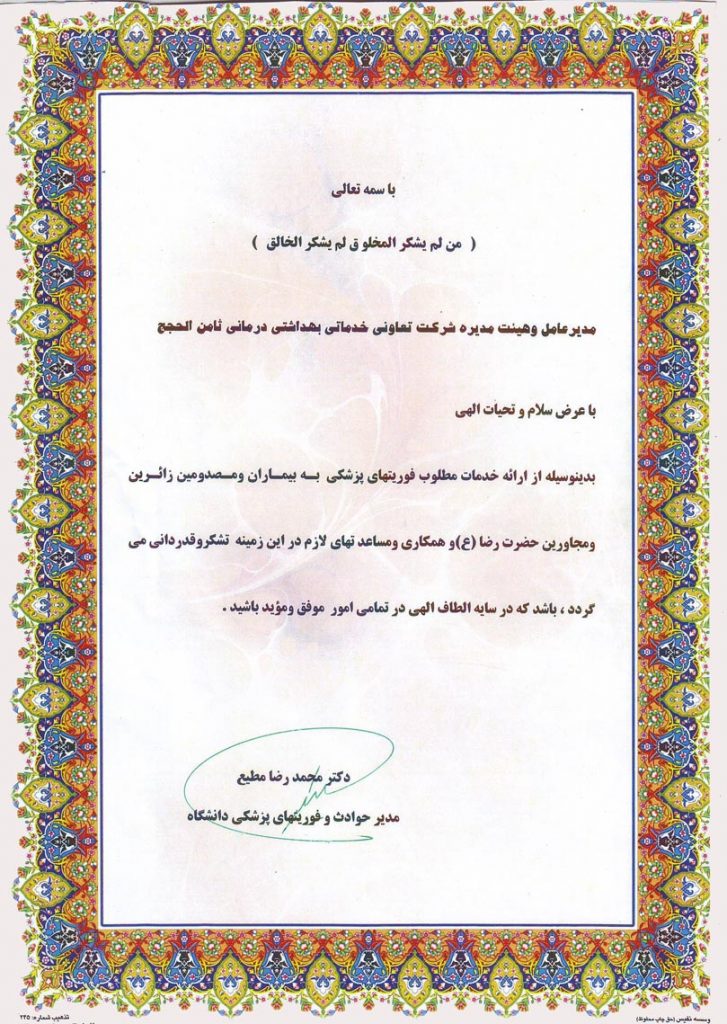 با سمه تعالی
( من لم یشکر المخلو ق لم یشکر الخالق )
مدیرعامل وهیئت مدیره شرکت تعاونی خدماتی بهداشتی درمانی ثامن الحجج
با عرض سلام و تحیات الهی
بدینوسیله از ارائه خدمات مطلوب فوریتهای پزشکی به بیماران ومصدومین زائرین
ومجاورین حضرت رضا (ع)و همکاری ومساعد تهای لازم در این زمینه تشکروقدردانی می
گردد ، باشد که در سایه الطاف الهی در تمامی امور موفق ومؤید باشید .
دکتر محمد رضا مطیع
مدیر حوادث و فوریتهای پزشکی دانشگاه
موسسه نفیس (حق چاپ محفوظ)
تذهیب شماره: ۲۲۵